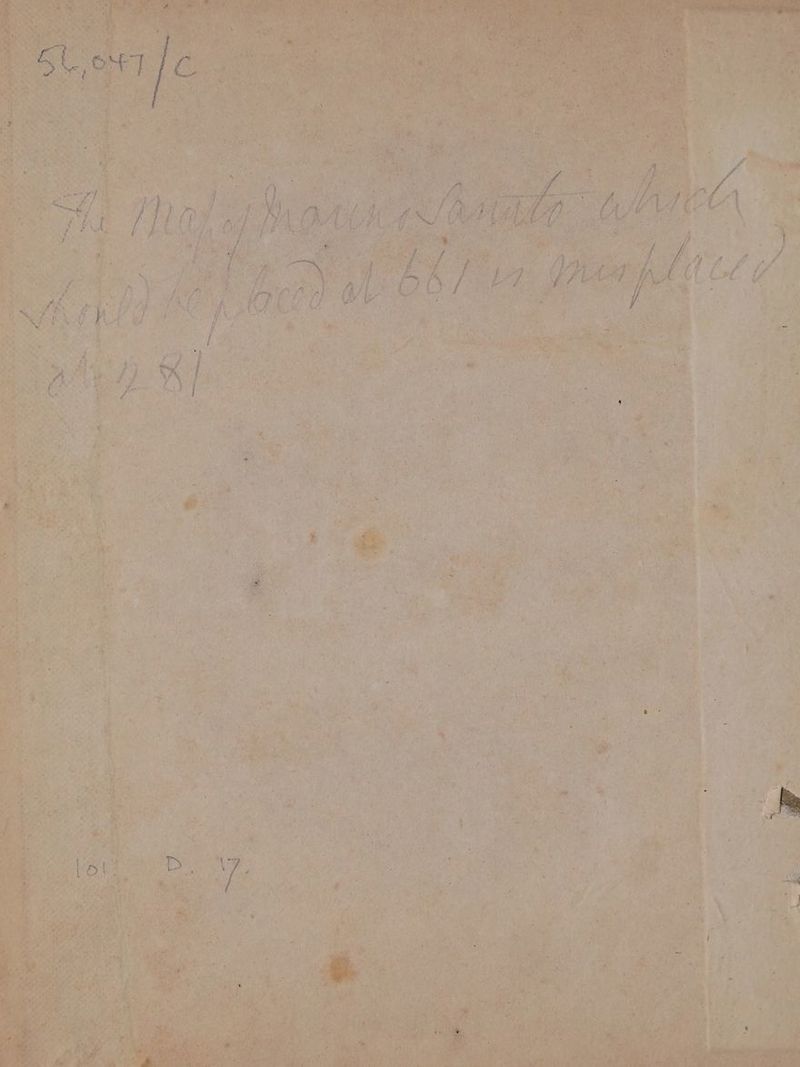 56,047/C
The Map of Marino Sanuto which
should be placed at 661 is misplaced
at 281
101. D. 17.